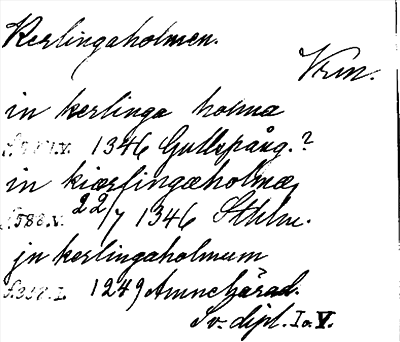 Kerlingaholmen.
Vrm.
in kerlinga holma
1346 Gullspång.?
in kiærlingæholmæ
s. 588. V. 22/7 1346 Sthlm.
jn kerlingaholmum
1249 Amnehärad.
Sv. dipl. I o. V.